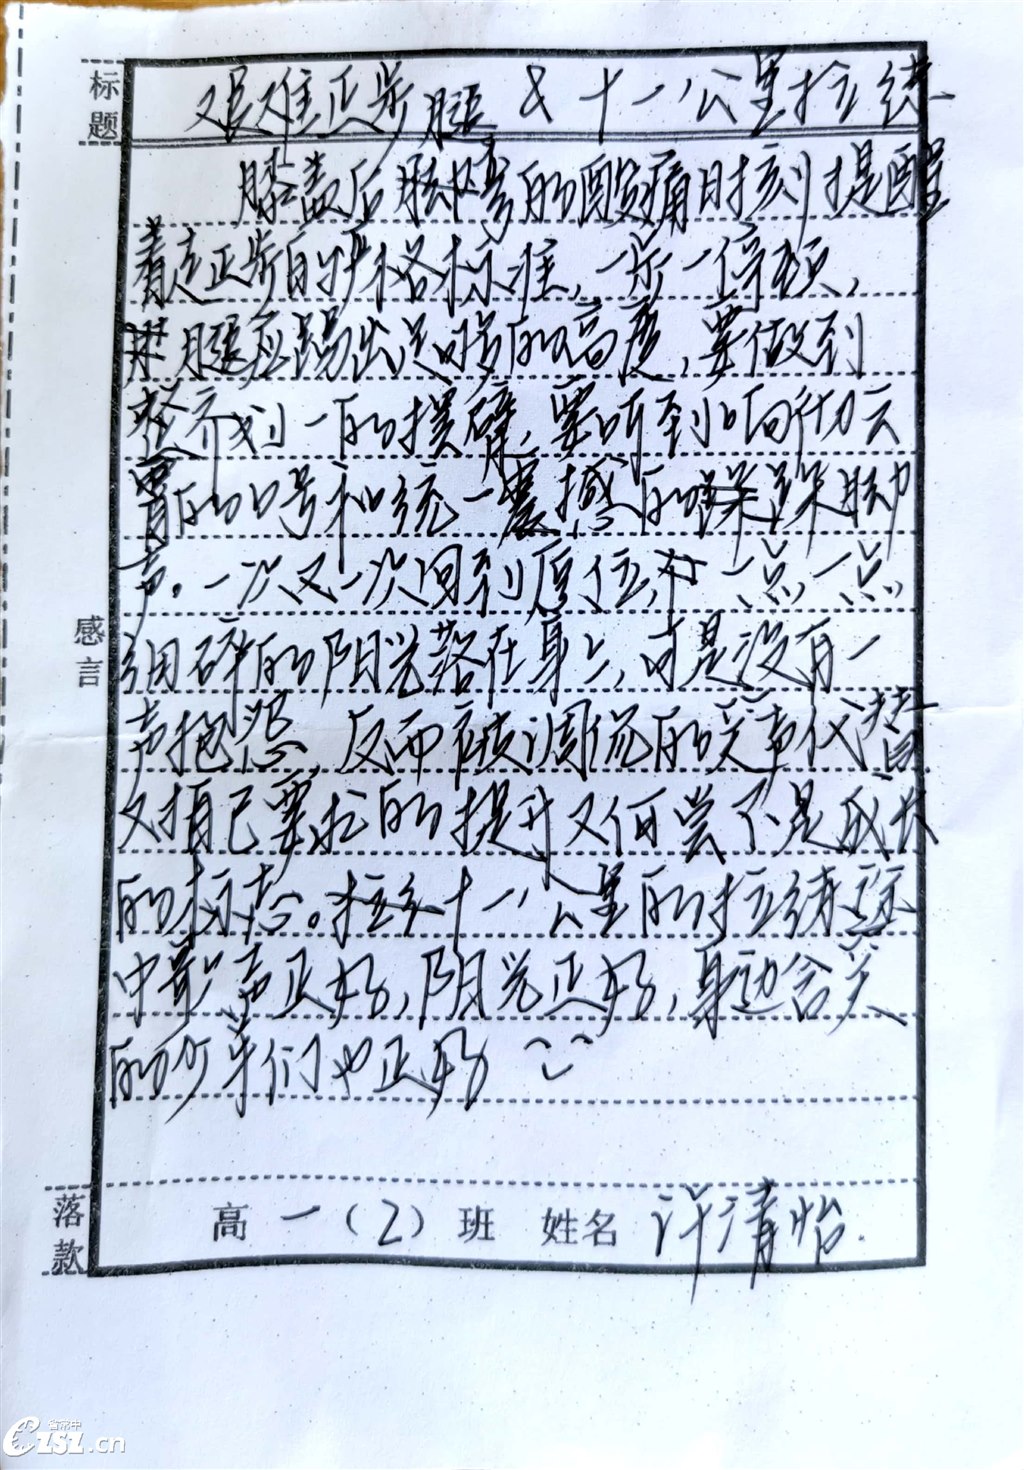 标题
艰难正步腿 & 十一公里拉练
膝盖后腘窝的酸痛时刻提醒
着走正步的严格标准,一步一停顿,
腿应踢出足够的高度,要做到
整齐划一的摆臂,要听到响彻云
霄的口号和统一震撼的踩脚
声。一次又一次回到原位,一点一点
细碎的阳光落在身上,可是没有一
声抱怨,反而被调侃的笑声代替
对自己要求的提升又何尝不是成长
的标志。十一公里的拉练途
中歌声正好,阳光正好,身边含笑
的少年们也正好
感言
落款
高一(2)班 姓名 许清怡.
省常中
CZSZ.cn